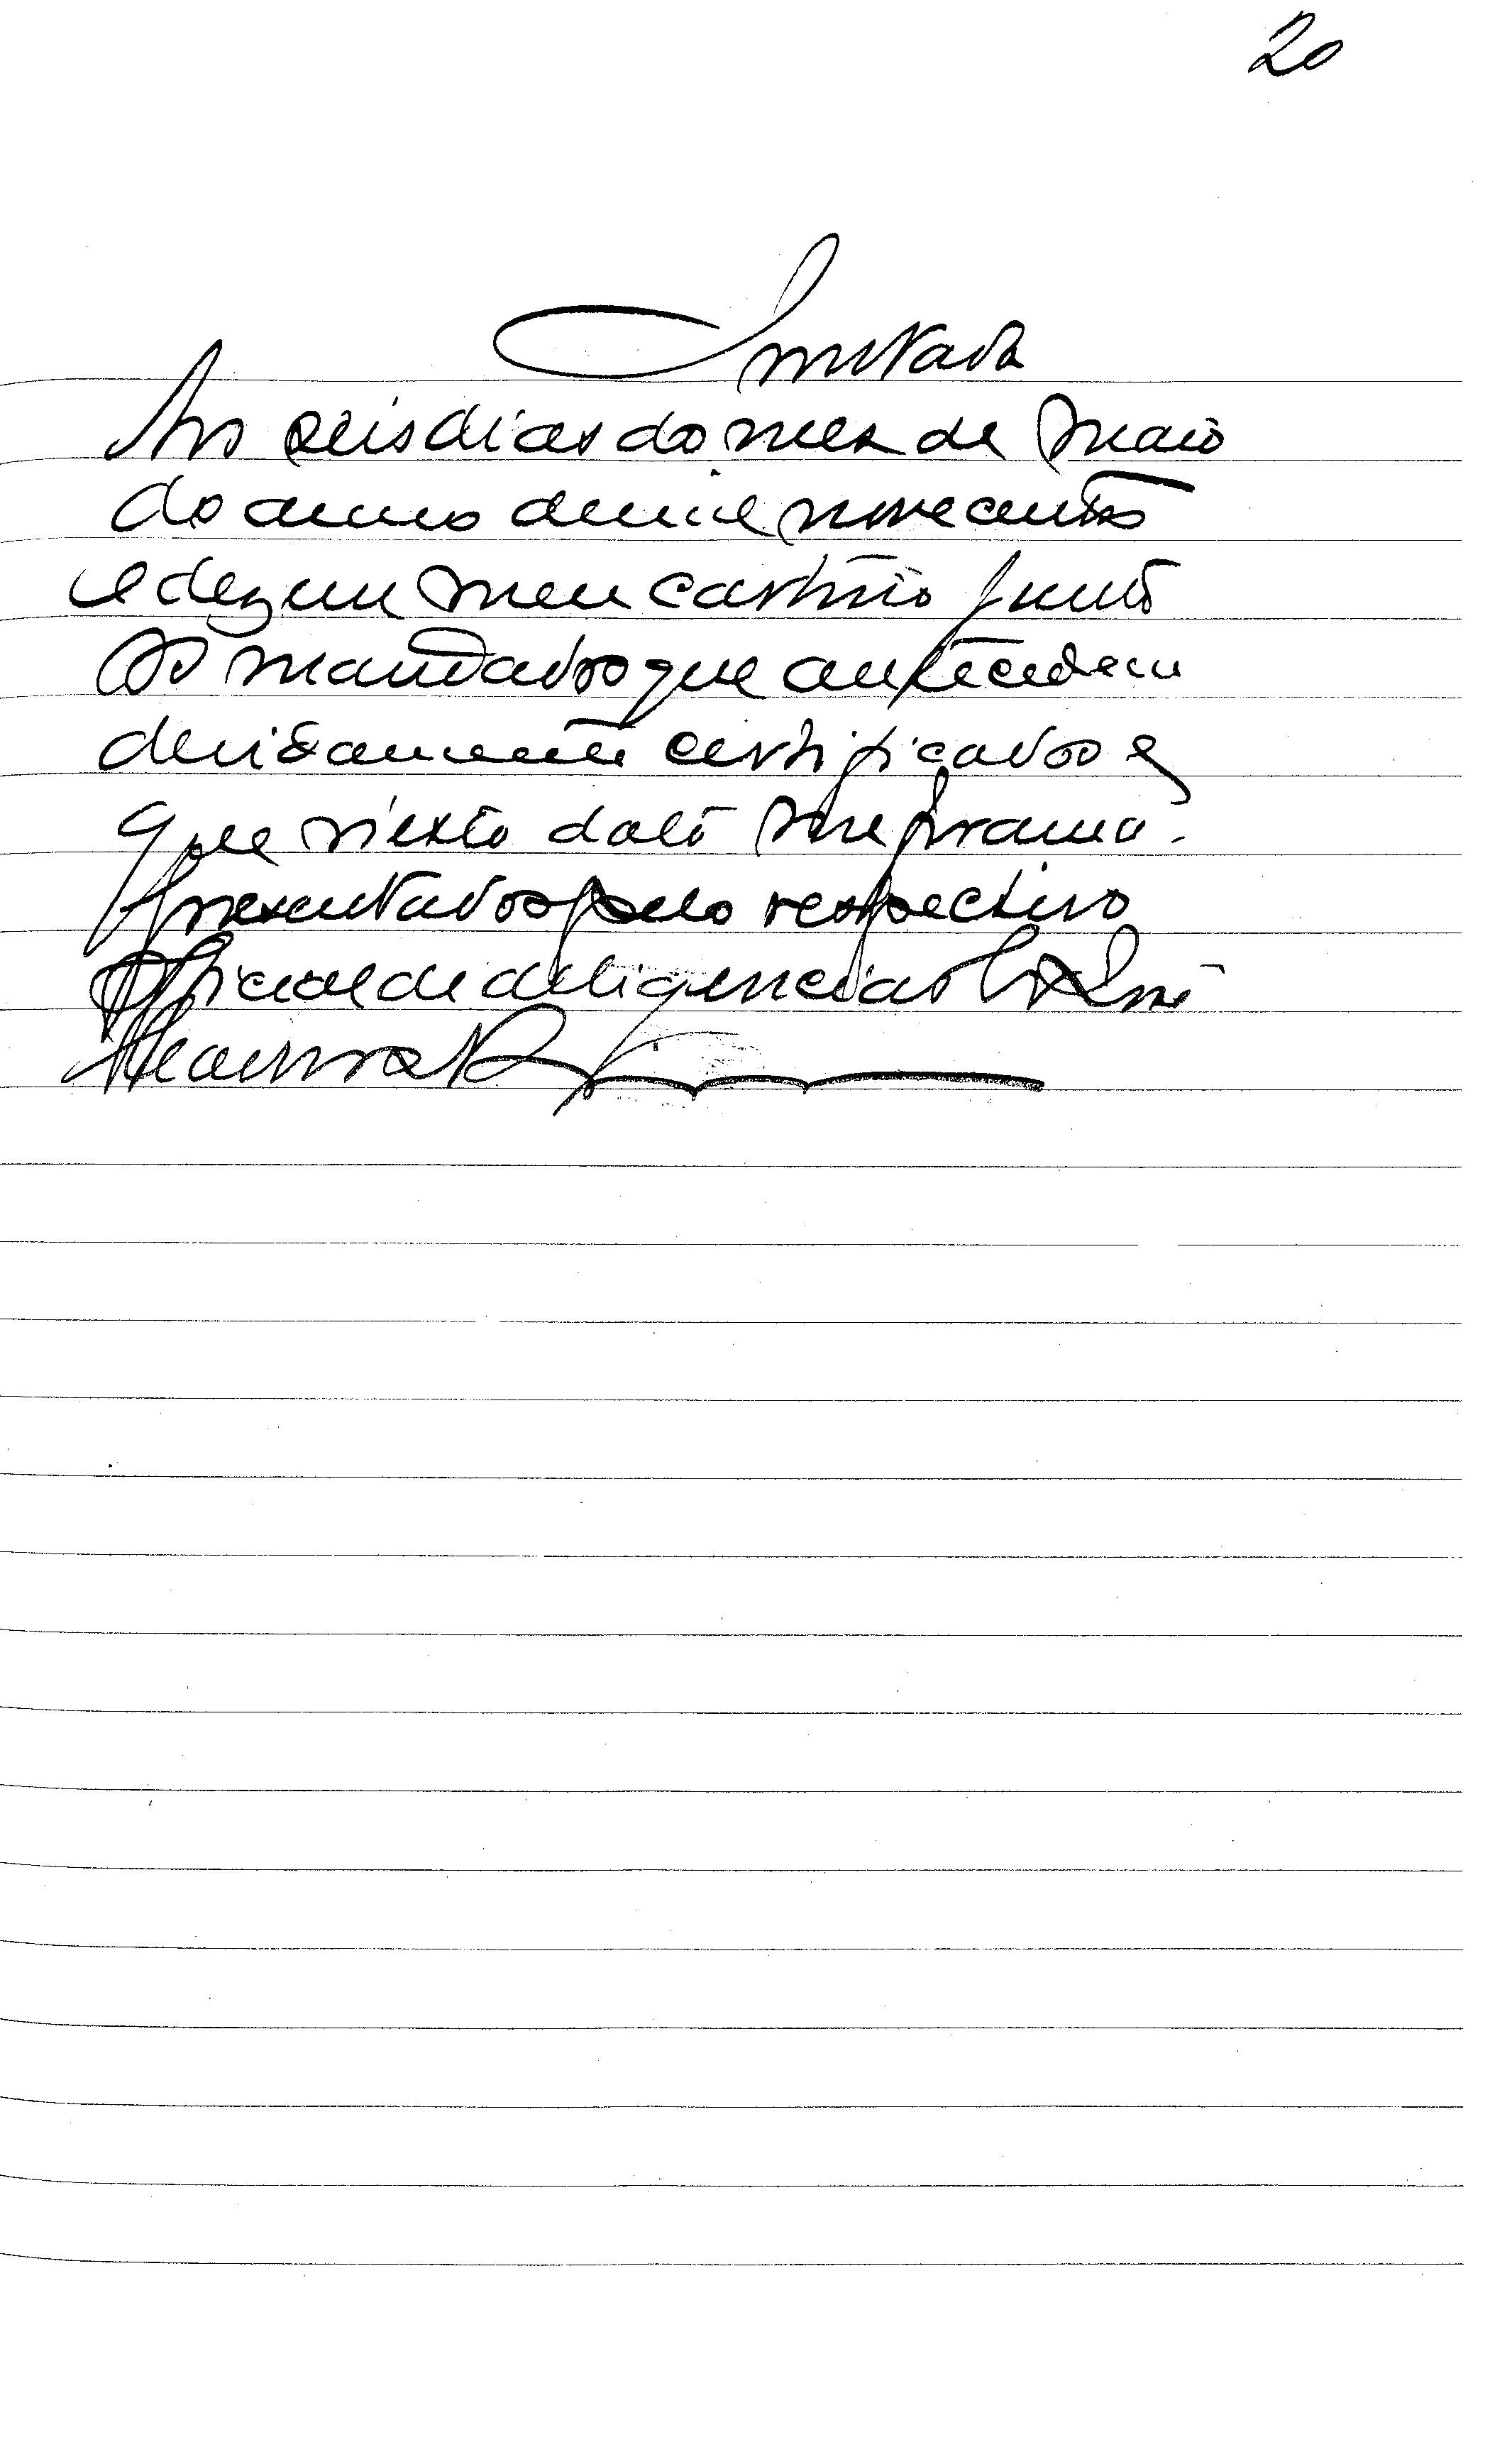 20
Juntada
Aos seis dias do mez de Maio
do anno de mil novecentos
e dez em meu cartorio junto
os mandados que antecedem
devidamente certificados e
que n'esta data me foram a-
presentados pelo respectivo
Official de deligencias